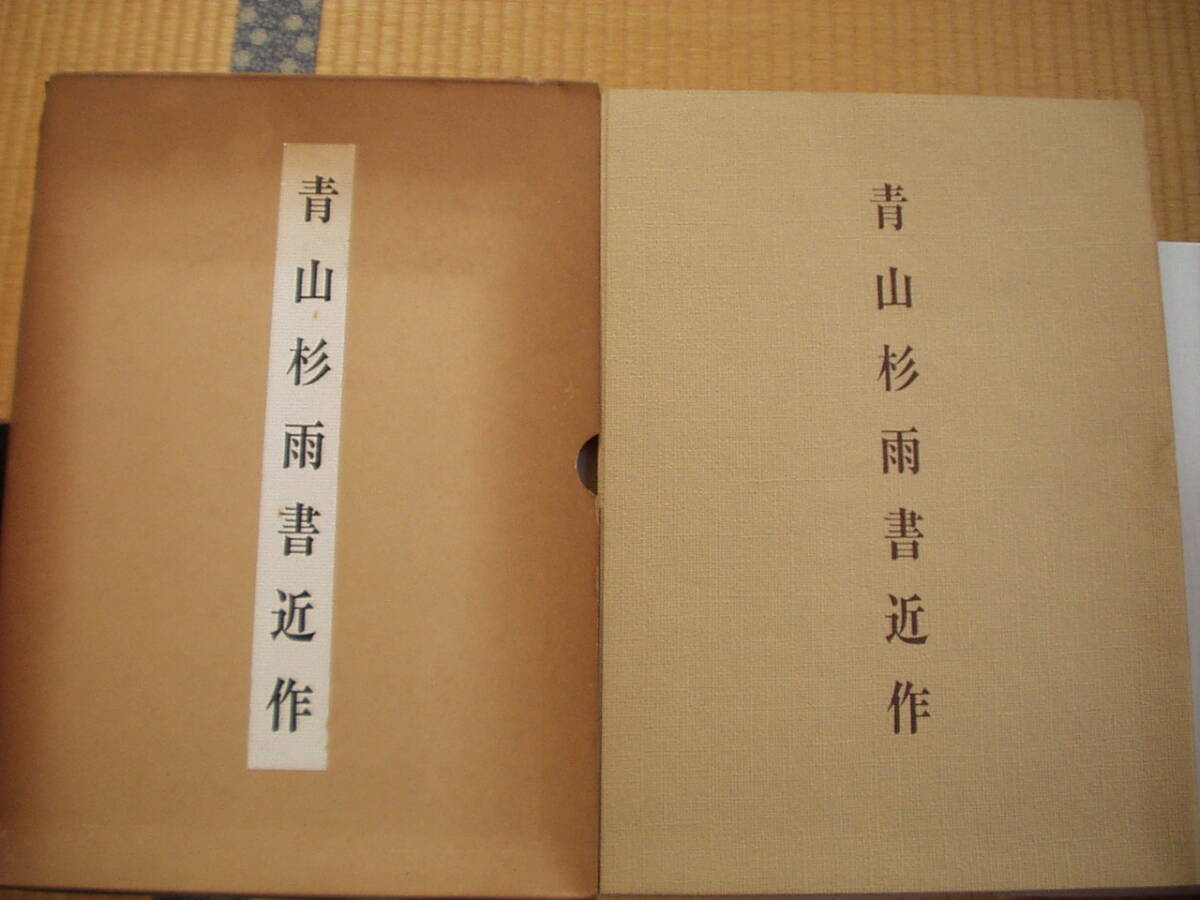 青山杉雨書近作
青山杉雨書近作